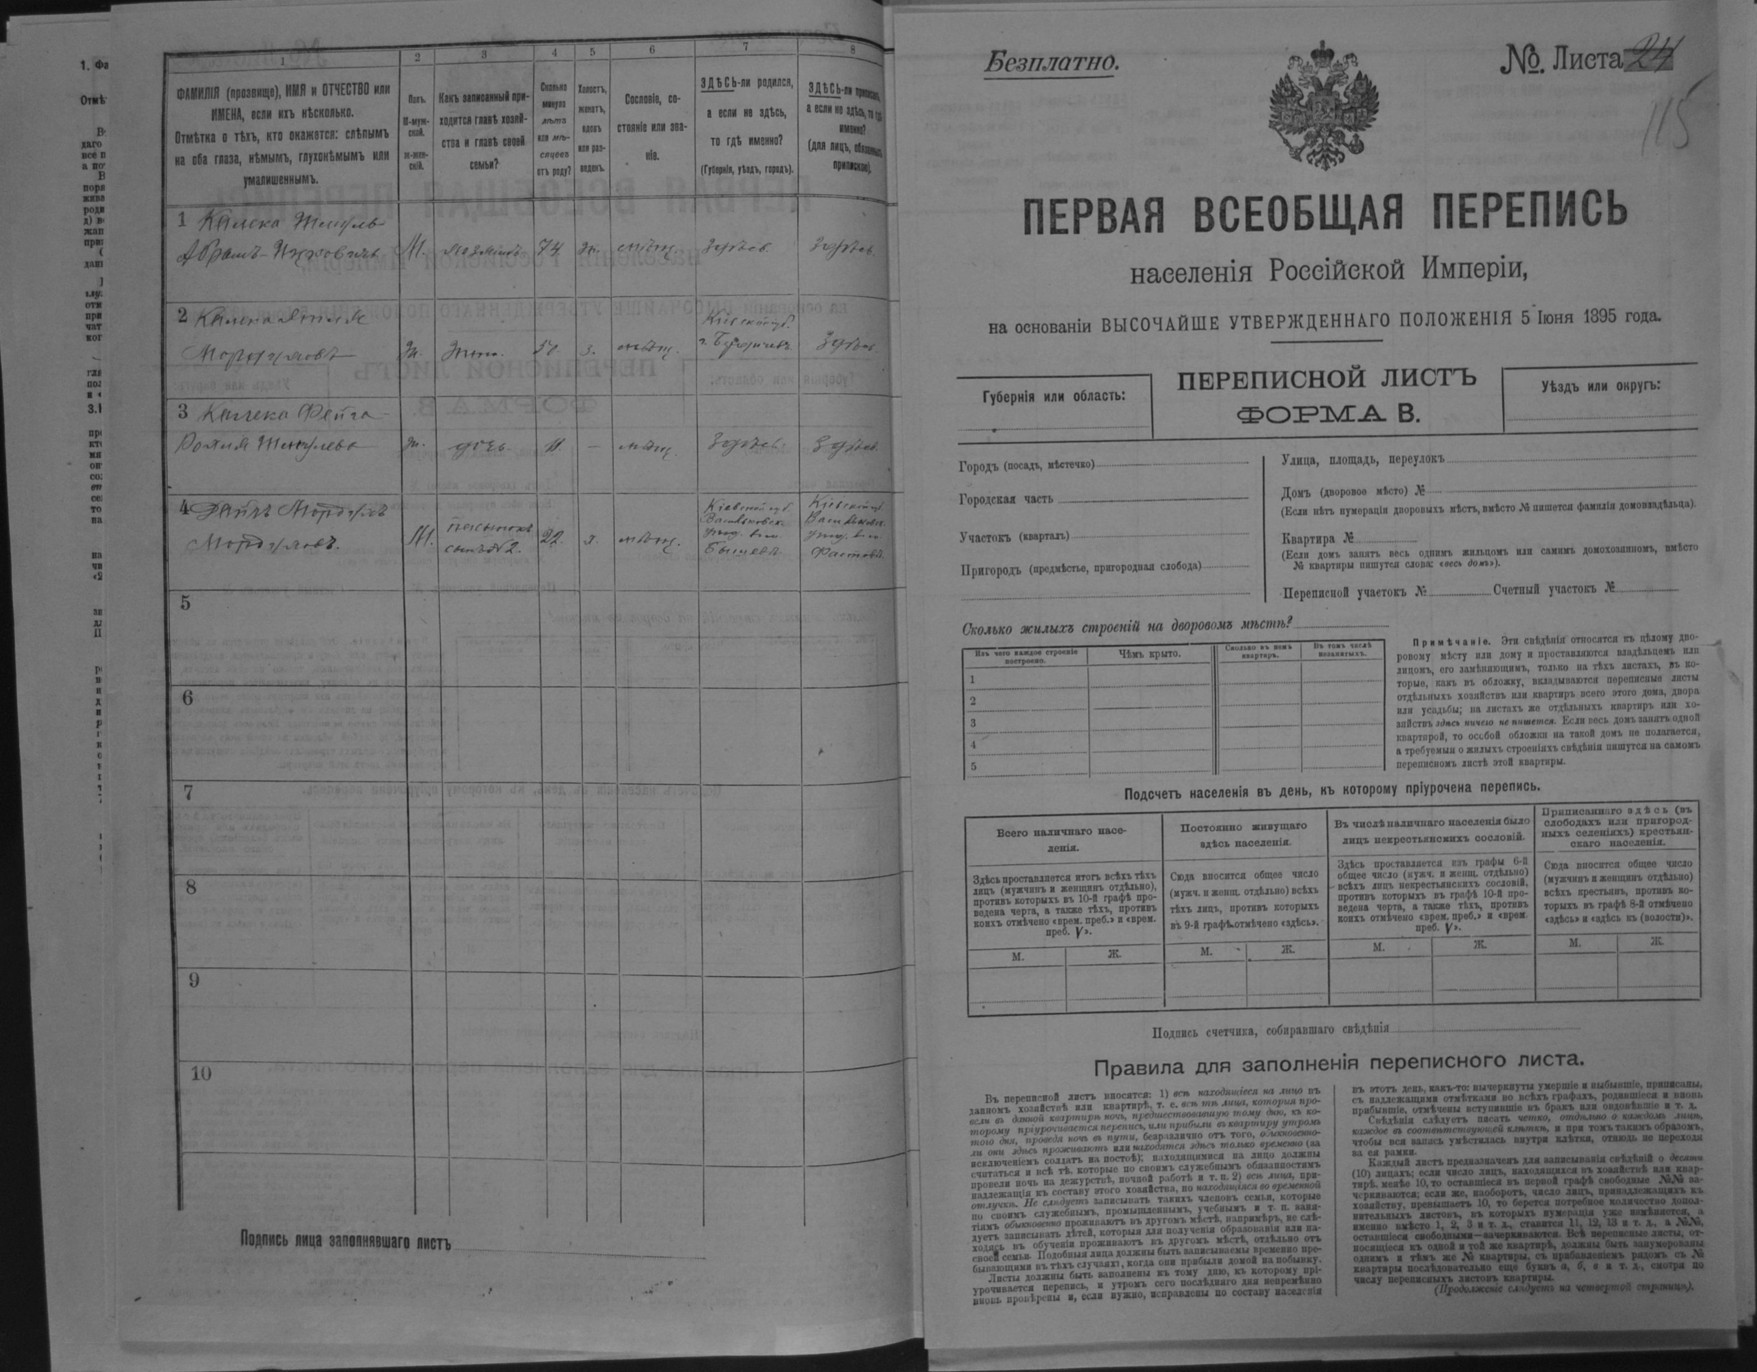 1
ФАМИЛІЯ (прозвище), ИМЯ и ОТЧЕСТВО или
ИМЕНА, если ихъ нѣсколько.
Отмѣтка о тѣхъ, кто окажется: слѣпымъ
на оба глаза, нѣмымъ, глухонѣмымъ или
умалишеннымъ.
2
Полъ.
М-муж-
ской.
Ж-жен-
скій.
3
Какъ записанный при-
ходится главѣ хозяй-
ства и главѣ своей
семьи?
4
Сколько
минуло
лѣтъ
или мѣ-
сяцевъ
отъ роду?
5
Холостъ,
женатъ,
вдовъ
или раз-
веденъ.
6
Сословіе, со-
стояніе или зва-
ніе.
7
ЗДѢСЬ-ли родился,
а если не здѣсь,
то гдѣ именно?
(Губернія, уѣздъ, городъ).
8
ЗДѢСЬ-ли приписанъ,
а если не здѣсь, то гдѣ
именно?
(для лицъ, обязанныхъ
припиской).
1
М. 74 здѣсь здѣсь
2
Кіевской губ.
г. Бердичевъ
ж. жена. мѣщ. здѣсь
3
ж. дочь 11 – мѣщ. здѣсь здѣсь
4
М. 22 мѣщ.
5
6
7
8
9
10
Подпись лица заполнявшаго листъ
Безплатно.
№ Листа 24
115
ПЕРВАЯ ВСЕОБЩАЯ ПЕРЕПИСЬ
населенія Россійской Имперіи,
на основаніи ВЫСОЧАЙШЕ УТВЕРЖДЕННАГО ПОЛОЖЕНІЯ 5 Іюня 1895 года.
Губернія или область:
ПЕРЕПИСНОЙ ЛИСТЪ
ФОРМА В.
Уѣздъ или округъ:
Городъ (посадъ, мѣстечко)
Городская часть
Участокъ (кварталъ)
Пригородъ (предмѣстье, пригородная слобода)
Улица, площадь, переулокъ
Домъ (дворовое мѣсто) №
(Если нѣтъ нумераціи дворовыхъ мѣстъ, вмѣсто № пишется фамилія домовладѣльца).
Квартира №
(Если домъ занятъ весь однимъ жильцомъ или самимъ домохозяиномъ, вмѣсто
№ квартиры пишутся слова: «весь домъ»).
Переписной участокъ № Счетный участокъ №
Сколько жилыхъ строеній на дворовомъ мѣстѣ?
Изъ чего каждое строеніе
построено.
Чѣмъ крыто.
Сколько въ немъ
квартиръ.
Въ томъ числѣ
незанятыхъ.
1
2
3
4
5
Примѣчаніе. Эти свѣдѣнія относятся къ цѣлому дво-
ровому мѣсту или дому и проставляются владѣльцемъ или
лицомъ, его замѣняющимъ, только на тѣхъ листахъ, въ ко-
торые, какъ въ обложку, вкладываются переписные листы
отдѣльныхъ хозяйствъ или квартиръ всего этого дома, двора
или усадьбы; на листахъ же отдѣльныхъ квартиръ или хо-
зяйствъ здѣсь ничего не пишется. Если весь домъ занятъ одной
квартирой, то особой обложки на такой домъ не полагается,
а требуемыя о жилыхъ строеніяхъ свѣдѣнія пишутся на самомъ
переписномъ листѣ этой квартиры.
Подсчетъ населенія въ день, къ которому пріурочена перепись.
Всего наличнаго насе-
ленія.
Здѣсь проставляется итогъ всѣхъ тѣхъ
лицъ (мужчинъ и женщинъ отдѣльно),
противъ которыхъ въ 10-й графѣ про-
ведена черта, а также тѣхъ, противъ
коихъ отмѣчено «врем. преб.» и «врем.
преб. V».
Постоянно живущаго
здѣсь населенія.
Сюда вносится общее число
(мужч. и женщ. отдѣльно) всѣхъ
тѣхъ лицъ, противъ которыхъ
въ 9-й графѣ отмѣчено «здѣсь».
Въ числѣ наличнаго населенія было
лицъ некрестьянскихъ сословій.
Здѣсь проставляется изъ графы 6-й
общее число (мужч. и женщ. отдѣльно)
всѣхъ лицъ некрестьянскихъ сословій,
противъ которыхъ въ графѣ 10-й про-
ведена черта, а также тѣхъ, противъ
коихъ отмѣчено «врем. преб.» и «врем.
преб. V».
Приписаннаго здѣсь (въ
слободахъ или пригород-
ныхъ селеніяхъ) крестьян-
скаго населенія.
Сюда вносится общее число
(мужчинъ и женщинъ отдѣльно)
всѣхъ крестьянъ, противъ ко-
торыхъ въ графѣ 8-й отмѣчено
«здѣсь» и «здѣсь къ (волости)».
М. Ж. М. Ж. М. Ж. М. Ж.
Подпись счетчика, собиравшаго свѣдѣнія
Правила для заполненія переписного листа.
Въ переписной листъ вносятся: 1) всѣ находящіеся на лицо въ
данномъ хозяйствѣ или квартирѣ, т. е. всѣ тѣ лица, которыя про-
вели въ данной квартирѣ ночь, предшествовавшую тому дню, къ ко-
торому пріурочивается перепись, или прибыли въ квартиру утромъ
того дня, проведя ночь въ пути, безразлично отъ того, обыкновенно-
ли они здѣсь проживаютъ или находятся здѣсь только временно (за
исключеніемъ солдатъ на постоѣ); находящимися на лицо должны
считаться и всѣ тѣ, которые по своимъ служебнымъ обязанностямъ
провели ночь на дежурствѣ, ночной работѣ и т. п. 2) всѣ лица, при-
надлежащія къ составу этого хозяйства, но находящіяся во временной
отлучкѣ. Не слѣдуетъ записывать такихъ членовъ семьи, которые
по своимъ служебнымъ, промышленнымъ, учебнымъ и т. п. заня-
тіямъ обыкновенно проживаютъ въ другомъ мѣстѣ, напримѣръ, не слѣ-
дуетъ записывать дѣтей, которыя для полученія образованія или на-
ходясь въ обученіи проживаютъ въ другомъ мѣстѣ, отдѣльно отъ
своей семьи. Подобныя лица должны быть записываемы временно пре-
бывающими въ тѣхъ случаяхъ, когда они прибыли домой на побывку.
Листы должны быть заполнены къ тому дню, къ которому прі-
урочивается перепись, и утромъ сего послѣдняго дня непремѣнно
вновь провѣрены и, если нужно, исправлены по составу населенія
въ этотъ день, какъ-то: вычеркнуты умершіе и выбывшіе, приписаны,
съ надлежащими отмѣтками во всѣхъ графахъ, родившіеся и вновь
прибывшіе, отмѣчены вступившіе въ бракъ или овдовѣвшіе и т. д.
Свѣдѣнія слѣдуетъ писать четко, отдѣльно о каждомъ лицѣ,
каждое въ соотвѣтствующей клѣткѣ, и при томъ такимъ образомъ,
чтобы вся запись умѣстилась внутри клѣтки, отнюдь не переходя
за ея рамки.
Каждый листъ предназначенъ для записыванія свѣдѣній о десяти
(10) лицахъ; если число лицъ, находящихся въ хозяйствѣ или квар-
тирѣ, менѣе 10, то оставшіеся въ первой графѣ свободные №№ за-
черкиваются; если же, наоборотъ, число лицъ, принадлежащихъ къ
хозяйству, превышаетъ 10, то берется потребное количество допол-
нительныхъ листовъ, въ которыхъ нумерація уже измѣняется, а
именно вмѣсто 1, 2, 3 и т. д., ставится 11, 12, 13 и т. д., а №№,
оставшіеся свободными—зачеркиваются. Всѣ переписные листы, от-
носящіеся къ одной и той же квартирѣ, должны быть занумерованы
однимъ и тѣмъ же № квартиры, съ прибавленіемъ рядомъ съ №
квартиры послѣдовательно еще буквъ а, б, в и т. д., смотря по
числу переписныхъ листовъ квартиры.
(Продолженіе слѣдуетъ на четвертой страницѣ).